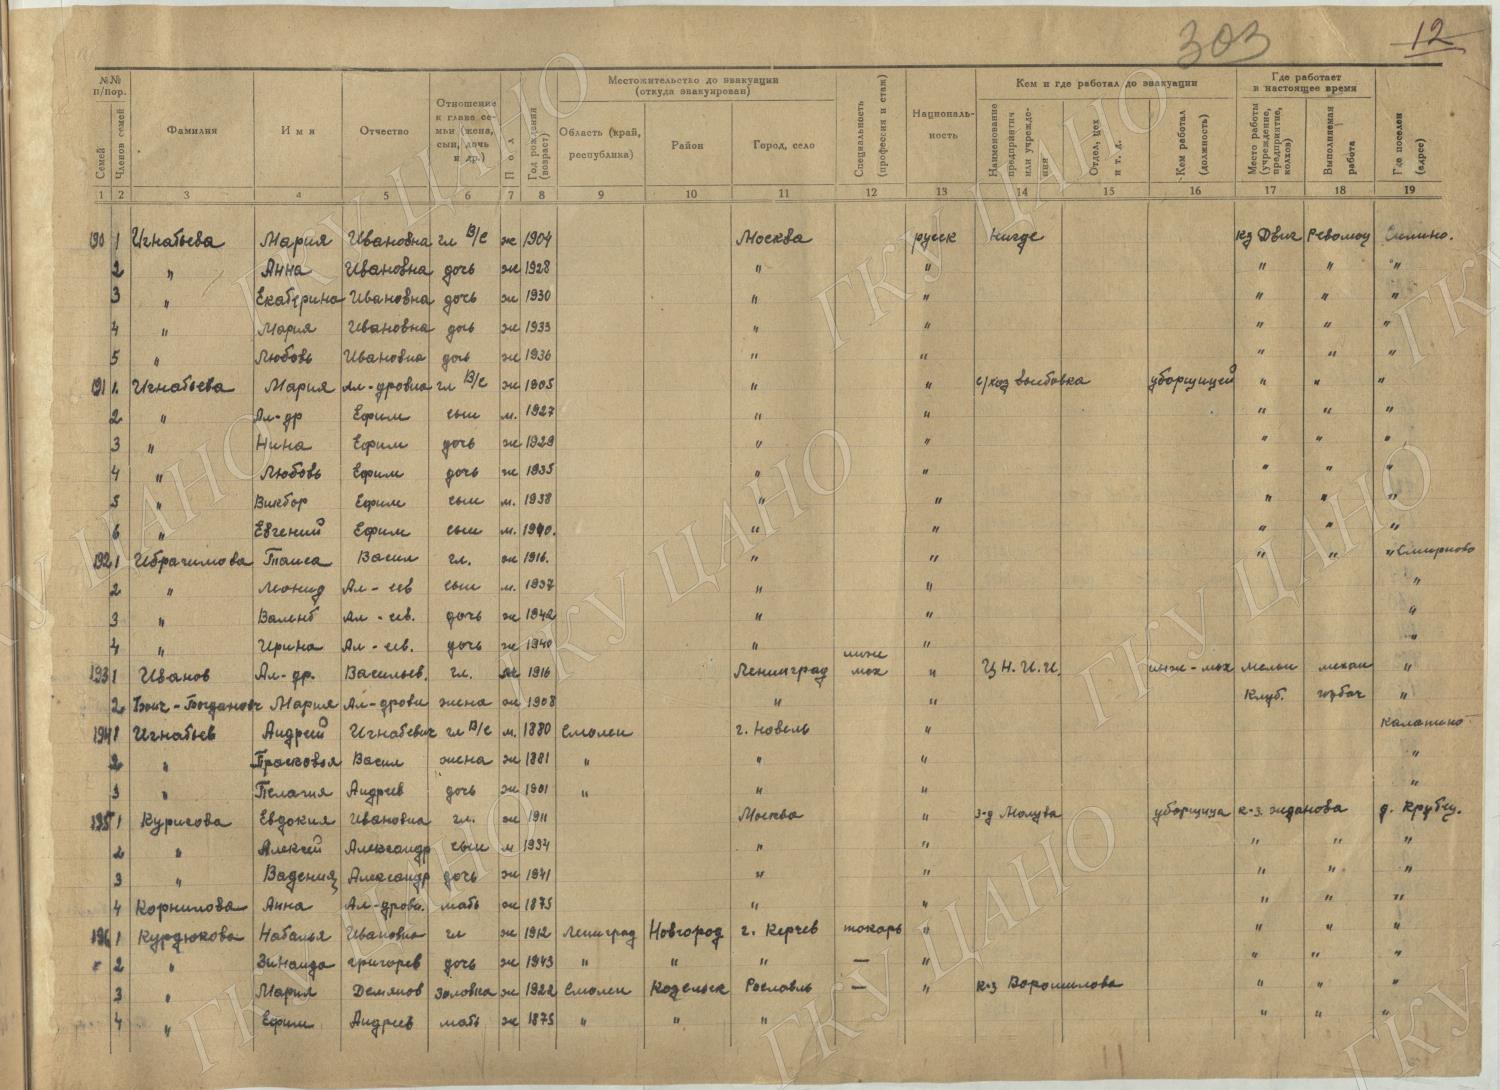 303
12
№№ п/пор.
Семей
Членов семей
Фамилия
Имя
Отчество
Отношение к главе семьи (жена, сын, дочь и др.)
Пол
Год рождения (возраст)
Местожительство до эвакуации (откуда эвакуирован)
Область (край, республика)
Район
Город, село
Специальность (профессия и стаж)
Националь-ность
Кем и где работал до эвакуации
Наименование предприятия или учрежде-ния
Отдел, цех и т. д.
Кем работал (должность)
Где работает в настоящее время
Место работы (учреждение, предприятие, колхоз)
Выполняемая работа
Где поселен (адрес)
1 2 3 4 5 6 7 8 9 10 11 12 13 14 15 16 17 18 19
190 1 Игнатьева Мария Ивановна гл В/С ж 1904 Москва русск нигде кз Двиг Революц
2 " Анна Ивановна дочь ж 1928 " " " " "
3 " Екатерина Ивановна дочь ж 1930 " " " " "
4 " Мария Ивановна дочь ж 1933 " " " " "
5 " Любовь Ивановна дочь ж 1936 " " " " "
191 1. Игнатьева Мария Ал-дровна гл В/С ж 1905 " с/хоз уборщицей " " "
2 " Ал-др Ефим сын м. 1927 " " " " "
3 " Нина Ефим дочь ж 1929 " " " " "
4 " Любовь Ефим дочь ж 1935 " " " " "
5 " Виктор Ефим сын м. 1938 " " " " "
6 " Евгений Ефим сын м. 1940. " " " " "
192 1 Ибрагимова Таиса Васил гл. ж 1916. " " " " " Смирново
2 " Леонид Ал-еев сын м. 1937 " " "
3 " Валент Ал-ев. дочь ж 1942 " " "
4 " Ирина Ал-еев. дочь ж 1940 " " "
193 1 Иванов Ал-др. Васильев. гл. 1916 Ленинград инже мех " Ц.Н.И.И. инж-мех мельн механ "
2 Мария Ал-дровн жена ж 1908 " " Клуб. "
194 1 Игнатьев Андрей Игнатьевич гл В/С м. 1880 Смолен г. Новель "
2 " Прасковья Васил жена ж 1881 " " " "
3 " Пелагия Андреев дочь ж 1901 " " " "
195 1 Евдокия Ивановна гл. ж 1911 Москва " уборщица к-з. Жданова
2 " Алексей Александр сын м 1934 " " " " "
3 " Александр дочь ж 1941 " " " " "
4 Корнилова Анна Ал-дровн. мать ж 1875 " " " " "
196 1 Курдюкова Наталья Ивановна гл ж 1912 Ленинград Новгород токарь " " " "
2 " Зинаида Григорев дочь ж 1943 " " " — " " " "
3 " Мария Демянов золовка ж 1922 Смолен Козельск Рославль — " к-з Ворошилова " " "
4 " Ефим Андреев мать ж 1875 " " " " " "
ГКУ ЦАНО